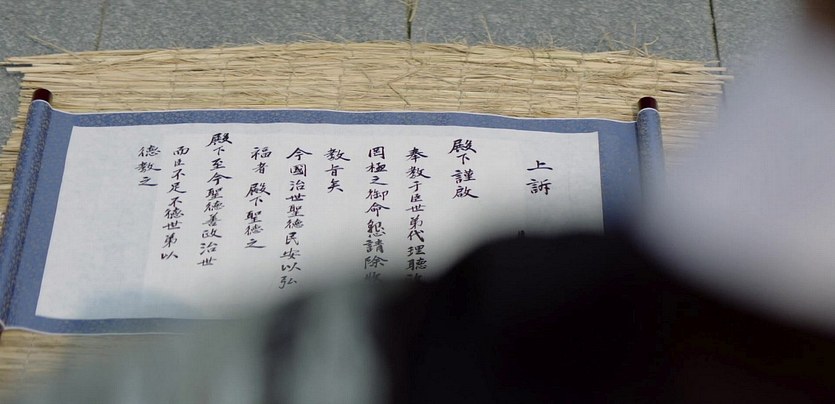 上訴
殿下謹啟
奉教于臣世弟代理聽
罔極之御命懇請除
教旨矣
今國治世聖德民安以弘
福者 殿下聖德之
殿下至今聖德善政治世
而臣不足不德世弟以
德教之